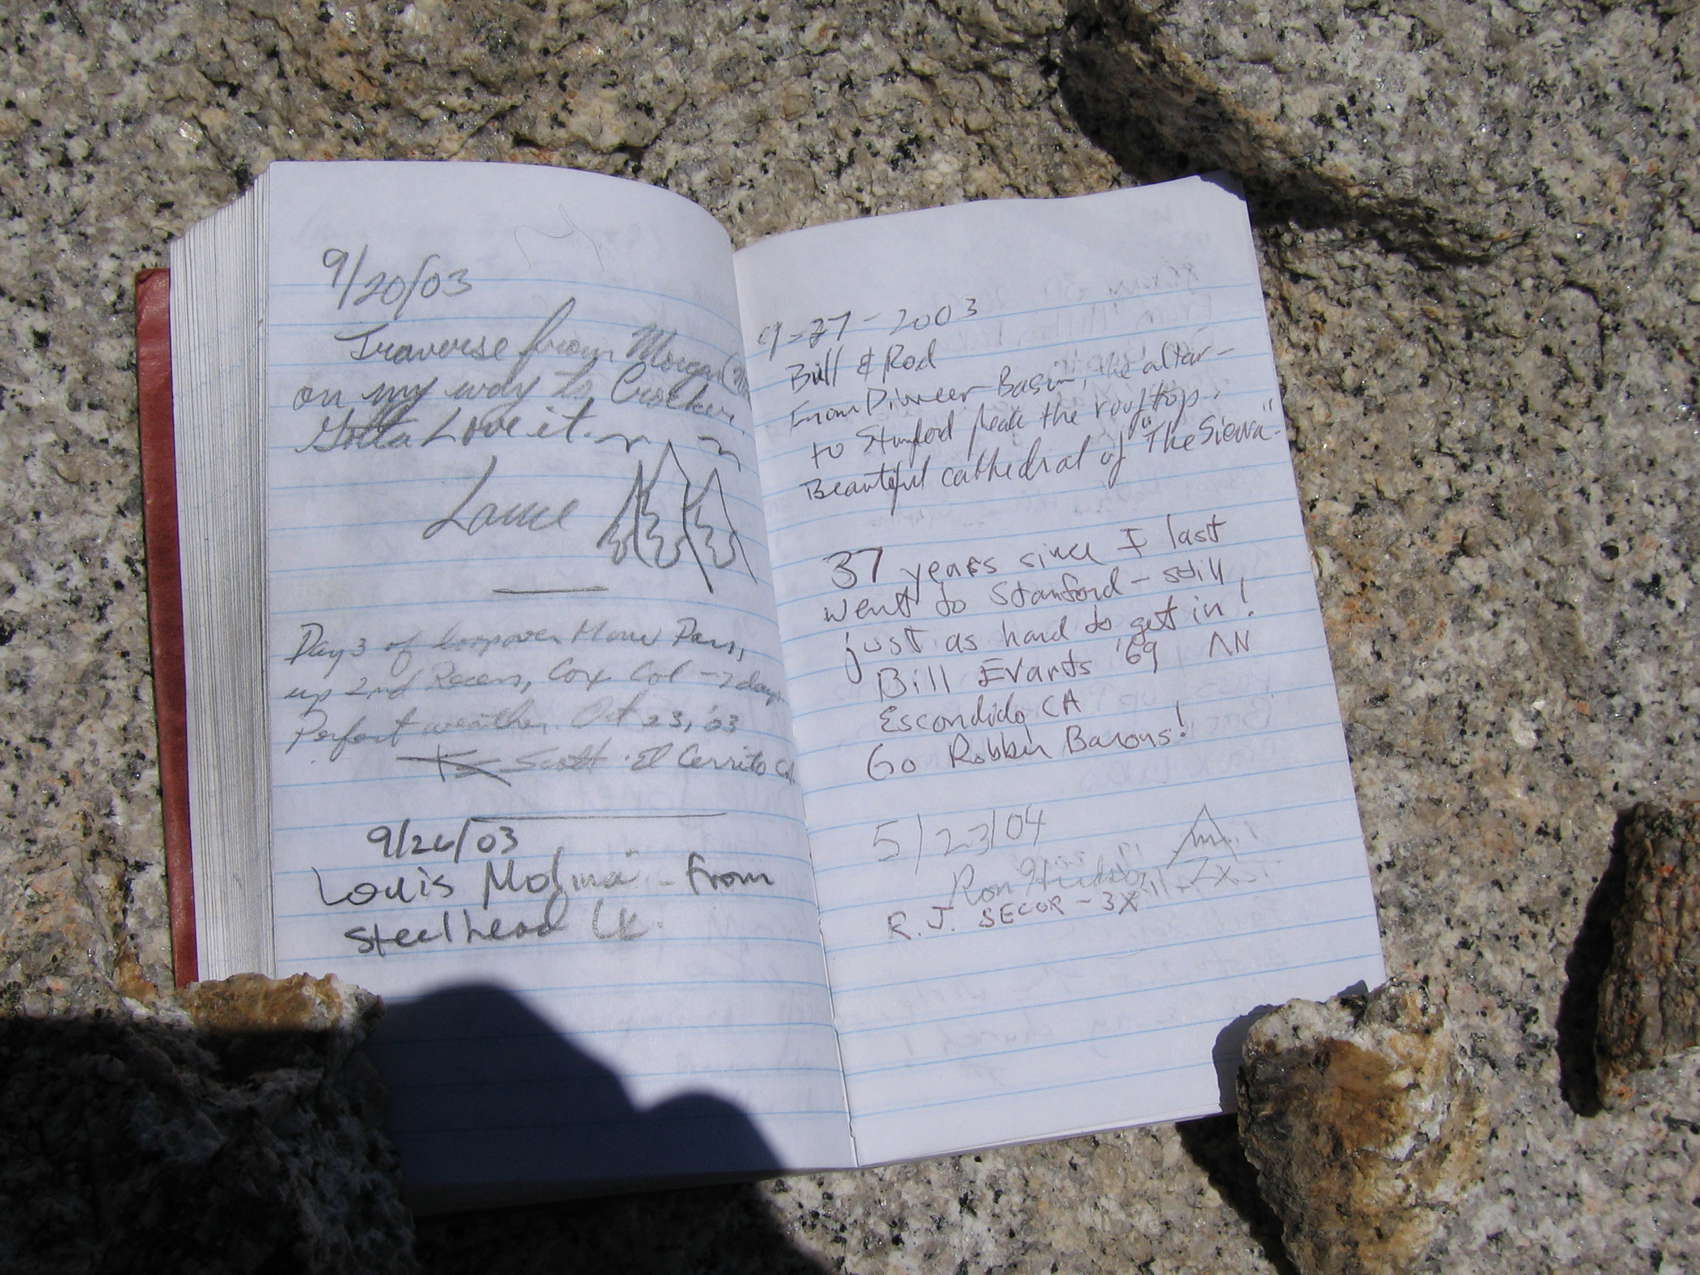 9/20/03
Traverse from Morgan
on my way to Crocker,
Gotta Love it.
Day 3 of loop over Mono Pass,
up 2nd Recess, Cox Col - 7 days
Perfect weather Oct 23, '03
Scott El Cerrito Ca
9/26/03
Louis Molina - From
Steelhead Lk.
9-27-2003
Bill & Rod
From Pioneer Basin, the altar -
to Stanford peak the rooftop,
Beautiful cathedral of "The Sierra"
37 years since I last
went to Stanford - still
just as hard to get in!
Bill Evarts '69 ΛN
Escondido CA
Go Robber Barons!
5/23/04
Ron 2X
R.J. SECOR - 3X